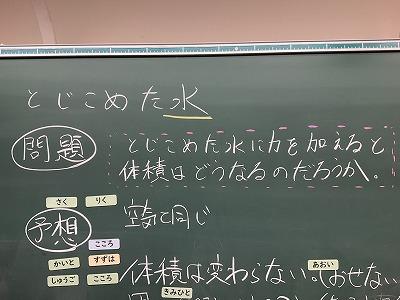 とじこめた水
問題
とじこめた水に力を加えると
体積はどうなるのだろうか。
さく
りく
予想
空気と同じ
こころ
かいと
すずは
しゅうご
こころ
あおい
体積は変わらない。(おせな
きみひと